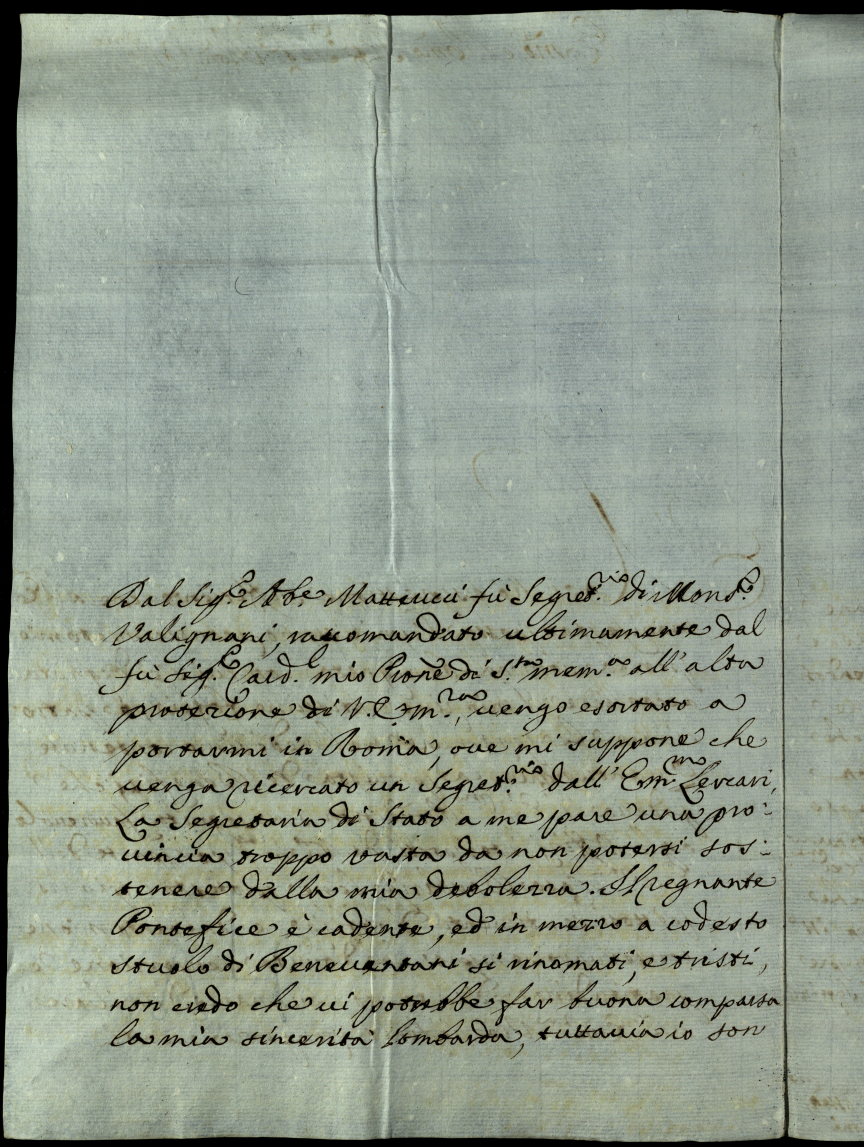 Dal Sig.r Ab.e Matteucci fù Segret.rio di Mons.r
Valignani, raccomandato ultimamente dal
fù Sig.r Card.l mio Pron̄e di S.ta mem.a all' alta
protezione di V. Em.za, vengo esortato a
portarmi in Roma, ove mi suppone che
venga ricercato un Segret.rio dall' Em.mo Lercari,
La Segretaria di Stato a me pare una pro-
vincia troppo vasta da non potersi sos-
tenere dalla mia debolezza. Il regnante
Pontefice è cadente, ed in mezzo a codesto
stuolo di Beneventani sì rinomati, e tristi,
non credo che vi potrebbe far buona comparsa
la mia sincerità lombarda, tuttavia io son